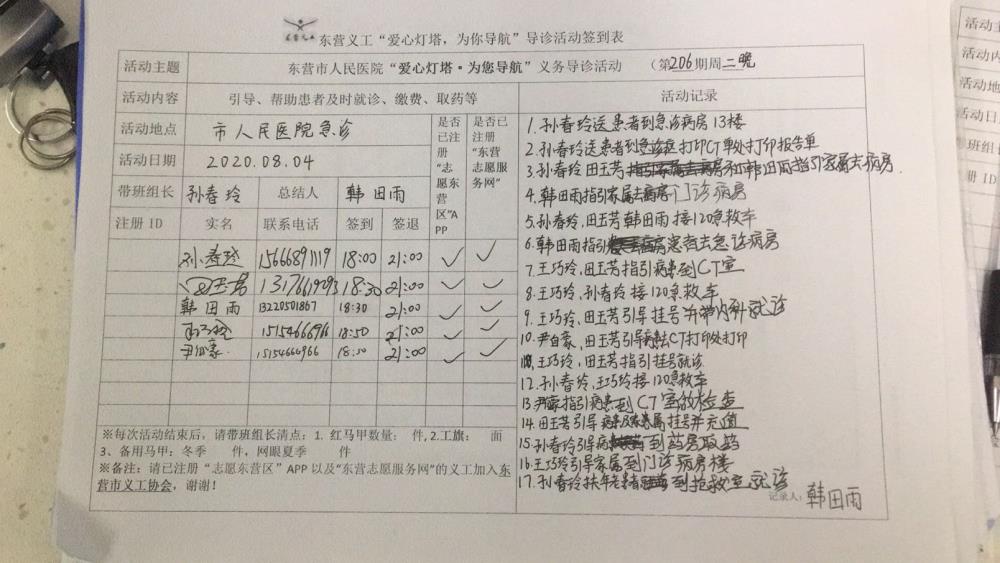 东营义工
东营义工“爱心灯塔，为你导航”导诊活动签到表
活动主题
东营市人民医院“爱心灯塔·为您导航”义务导诊活动 （第206期周二晚
活动内容 引导、帮助患者及时就诊、缴费、取药等
活动地点 市人民医院急诊
活动日期 2020.08.04
带班组长 孙春玲 总结人 韩田雨
是否已注册“志愿东营区”APP
是否已注册“东营志愿服务网”
注册 ID 实名 联系电话 签到 签退
孙春玲 15666891119 18:00 21:00 ✓ ✓
田玉芳 13176619093 18:30 21:00 ✓ ✓
韩田雨 13220501867 18:30 21:00 ✓ ✓
王巧玲 15154666966 18:50 21:00 ✓ ✓
尹自豪 15154666966 18:50 21:00 ✓ ✓
※每次活动结束后，请带班组长清点：1. 红马甲数量： 件，2.工旗： 面
3、备用马甲：冬季 件，网眼夏季 件
※备注：请已注册“志愿东营区”APP 以及“东营志愿服务网”的义工加入东
营市义工协会，谢谢！
活动记录
1. 孙春玲送患者到急诊病房13楼
2. 孙春玲送患者到急诊医打印CT单处打印报告单
3. 孙春玲 田玉芳 和韩田雨指引家属去病房.
4. 韩田雨指引家属去 门诊病房
5. 孙春玲, 田玉芳 韩田雨 接120急救车
6. 韩田雨指引 患者去急诊病房
7. 王巧玲, 田玉芳指引病患到CT室
8. 王巧玲, 孙春玲 接120急救车
9. 王巧玲, 田玉芳引导 挂号并带内科就诊
10. 尹自豪, 田玉芳引导病患去CT打印处打印
11. 王巧玲, 田玉芳指引挂号就诊
12. 孙春玲, 王巧玲接120急救车
13. 尹豪指引病患到CT室做检查
14. 田玉芳引导 家属挂号并充值
15. 孙春玲引导 到药房取药
16. 王巧玲引导家属到门诊病房楼
17. 孙春玲扶年老患者 到抢救室就诊
记录人: 韩田雨
活动主
活动内
活动地
活动日